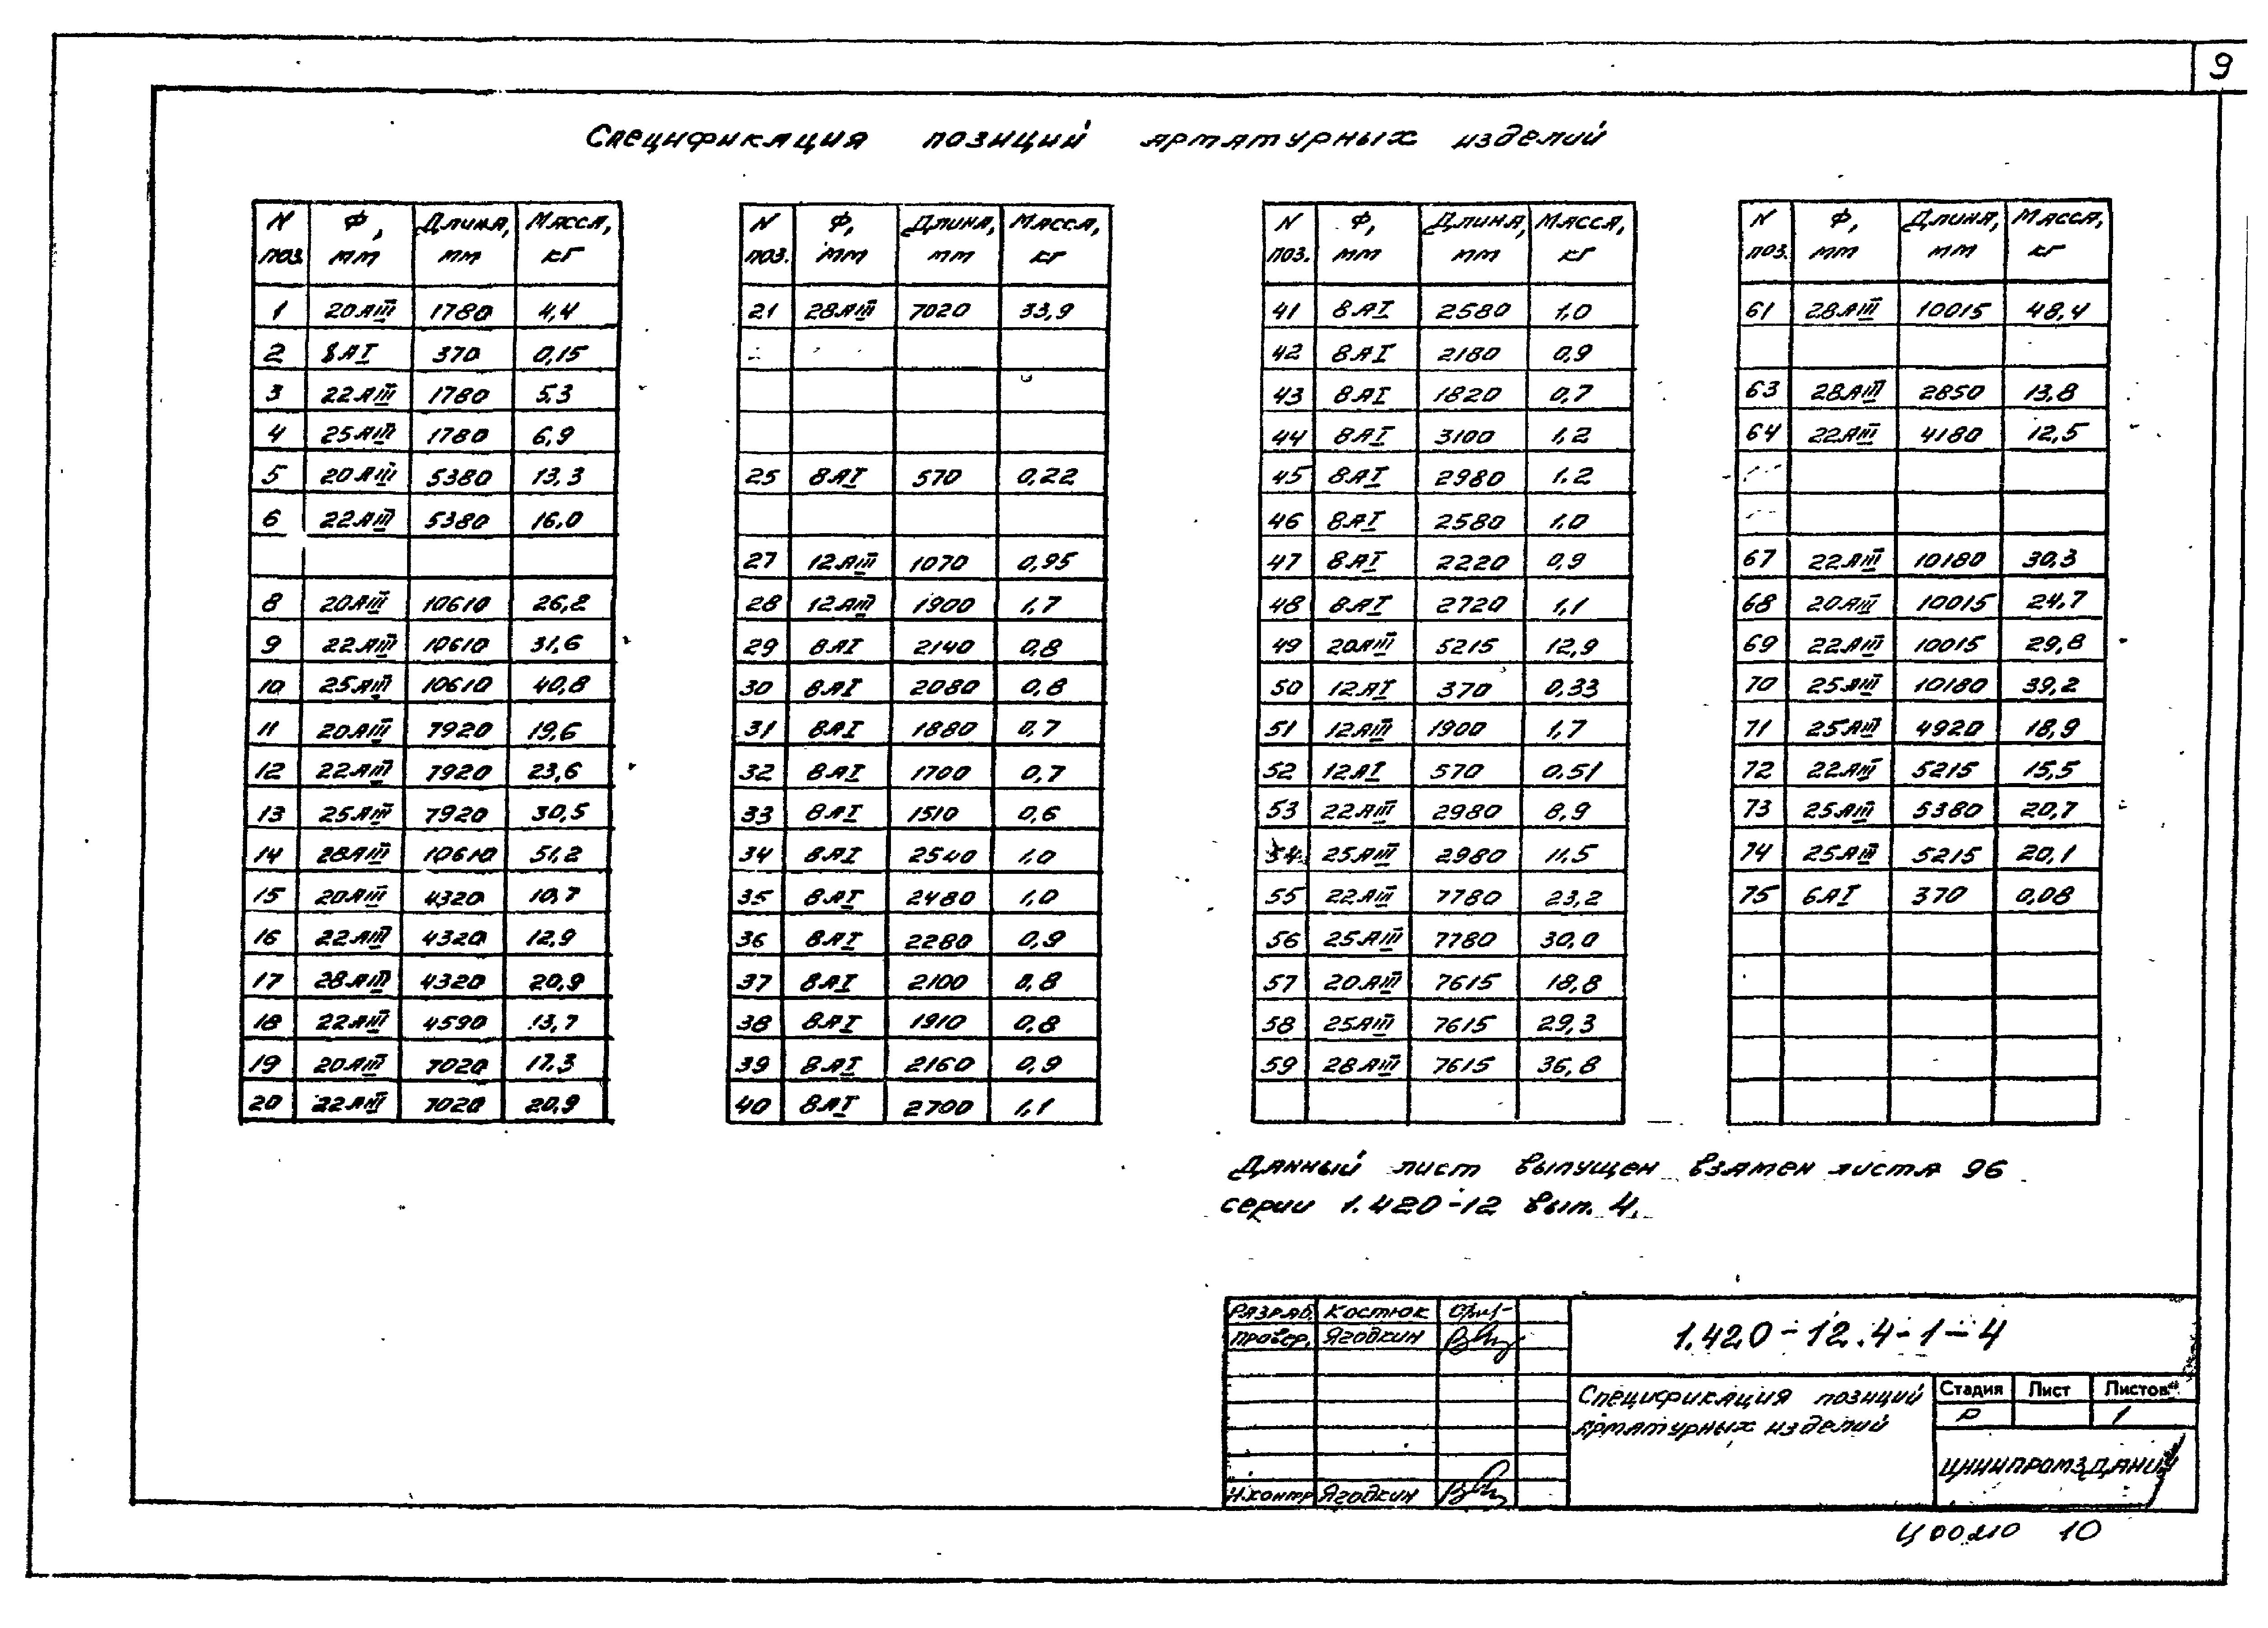 9
Спецификация позиций арматурных изделий
N поз. Ф, мм Длина, мм Масса, кг
1 20АIII 1780 4,4
2 8АI 370 0,15
3 22АIII 1780 5,3
4 25АIII 1780 6,9
5 20АIII 5380 13,3
6 22АIII 5380 16,0
8 20АIII 10610 26,2
9 22АIII 10610 31,6
10 25АIII 10610 40,8
11 20АIII 7920 19,6
12 22АIII 7920 23,6
13 25АIII 7920 30,5
14 28АIII 10610 51,2
15 20АIII 4320 10,7
16 22АIII 4320 12,9
17 28АIII 4320 20,9
18 22АIII 4590 13,7
19 20АIII 7020 17,3
20 22АIII 7020 20,9
N поз. Ф, мм Длина, мм Масса, кг
21 28АIII 7020 33,9
25 8АI 570 0,22
27 12АIII 1070 0,95
28 12АIII 1900 1,7
29 8АI 2140 0,8
30 8АI 2080 0,8
31 8АI 1880 0,7
32 8АI 1700 0,7
33 8АI 1510 0,6
34 8АI 2540 1,0
35 8АI 2480 1,0
36 8АI 2280 0,9
37 8АI 2100 0,8
38 8АI 1910 0,8
39 8АI 2160 0,9
40 8АI 2700 1,1
N поз. Ф, мм Длина, мм Масса, кг
41 8АI 2580 1,0
42 8АI 2180 0,9
43 8АI 1820 0,7
44 8АI 3100 1,2
45 8АI 2980 1,2
46 8АI 2580 1,0
47 8АI 2220 0,9
48 8АI 2720 1,1
49 20АIII 5215 12,9
50 12АI 370 0,33
51 12АIII 1900 1,7
52 12АI 570 0,51
53 22АIII 2980 8,9
54 25АIII 2980 11,5
55 22АIII 7780 23,2
56 25АIII 7780 30,0
57 20АIII 7615 18,8
58 25АIII 7615 29,3
59 28АIII 7615 36,8
N поз. Ф, мм Длина, мм Масса, кг
61 28АIII 10015 48,4
63 28АIII 2850 13,8
64 22АIII 4180 12,5
67 22АIII 10180 30,3
68 20АIII 10015 24,7
69 22АIII 10015 29,8
70 25АIII 10180 39,2
71 25АIII 4920 18,9
72 22АIII 5215 15,5
73 25АIII 5380 20,7
74 25АIII 5215 20,1
75 6АI 370 0,08
Данный лист выпущен взамен листа 96
серии 1.420-12 вып. 4.
Разраб. Костюк
Провер. Ягодкин
Н.контр Ягодкин
1.420-12.4-1-4
Спецификация позиций
арматурных изделий
Стадия Лист Листов
Р 1
ЦНИИПРОМЗДАНИЙ
Ц00210 10